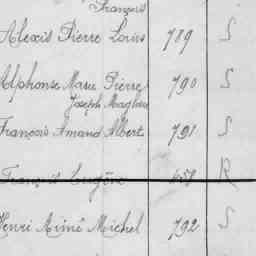 François
Alexis Pierre Louis 789 S
Alphonse Marie Pierre 790 S
Joseph
François Amand Albert 791 S
François Eugène R
Henri Aimé Michel 792 S